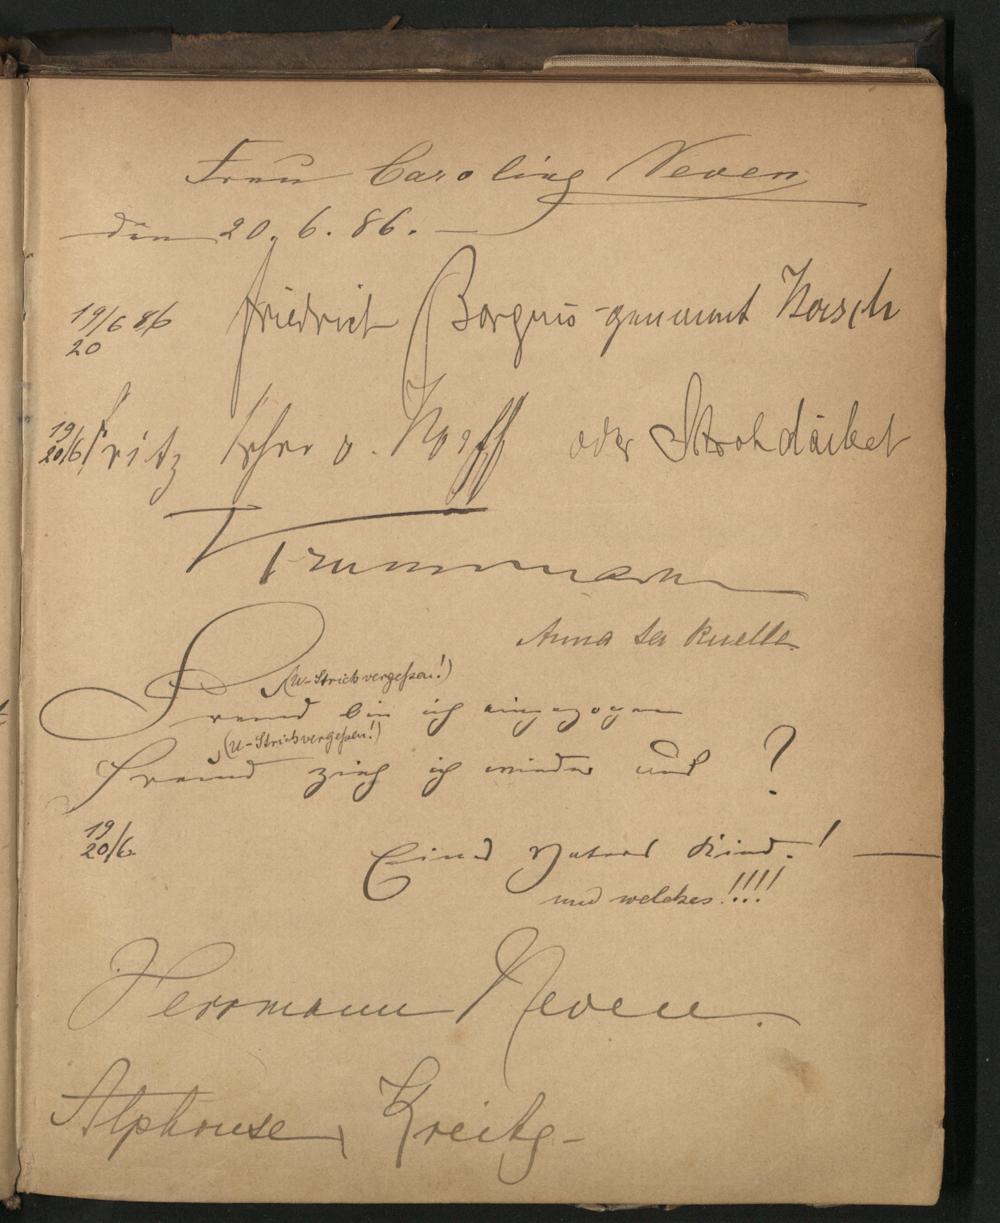 Frau Caroline Neven
den 20. 6. 86. —
19/6 86 Friedrich Borgnis - genannt
20
19
20/6 Fritz Frhr v. oder
Anna
(U-Strich vergeßen!)
Fremd bin ich eingezogen
(U-Strich vergeßen!)
Freund zieh ich wieder aus ?
19
20/6. Eines Vaters Kind.! —
und welches!!!!
Herrmann Neven.
Alphonse Kreitz -